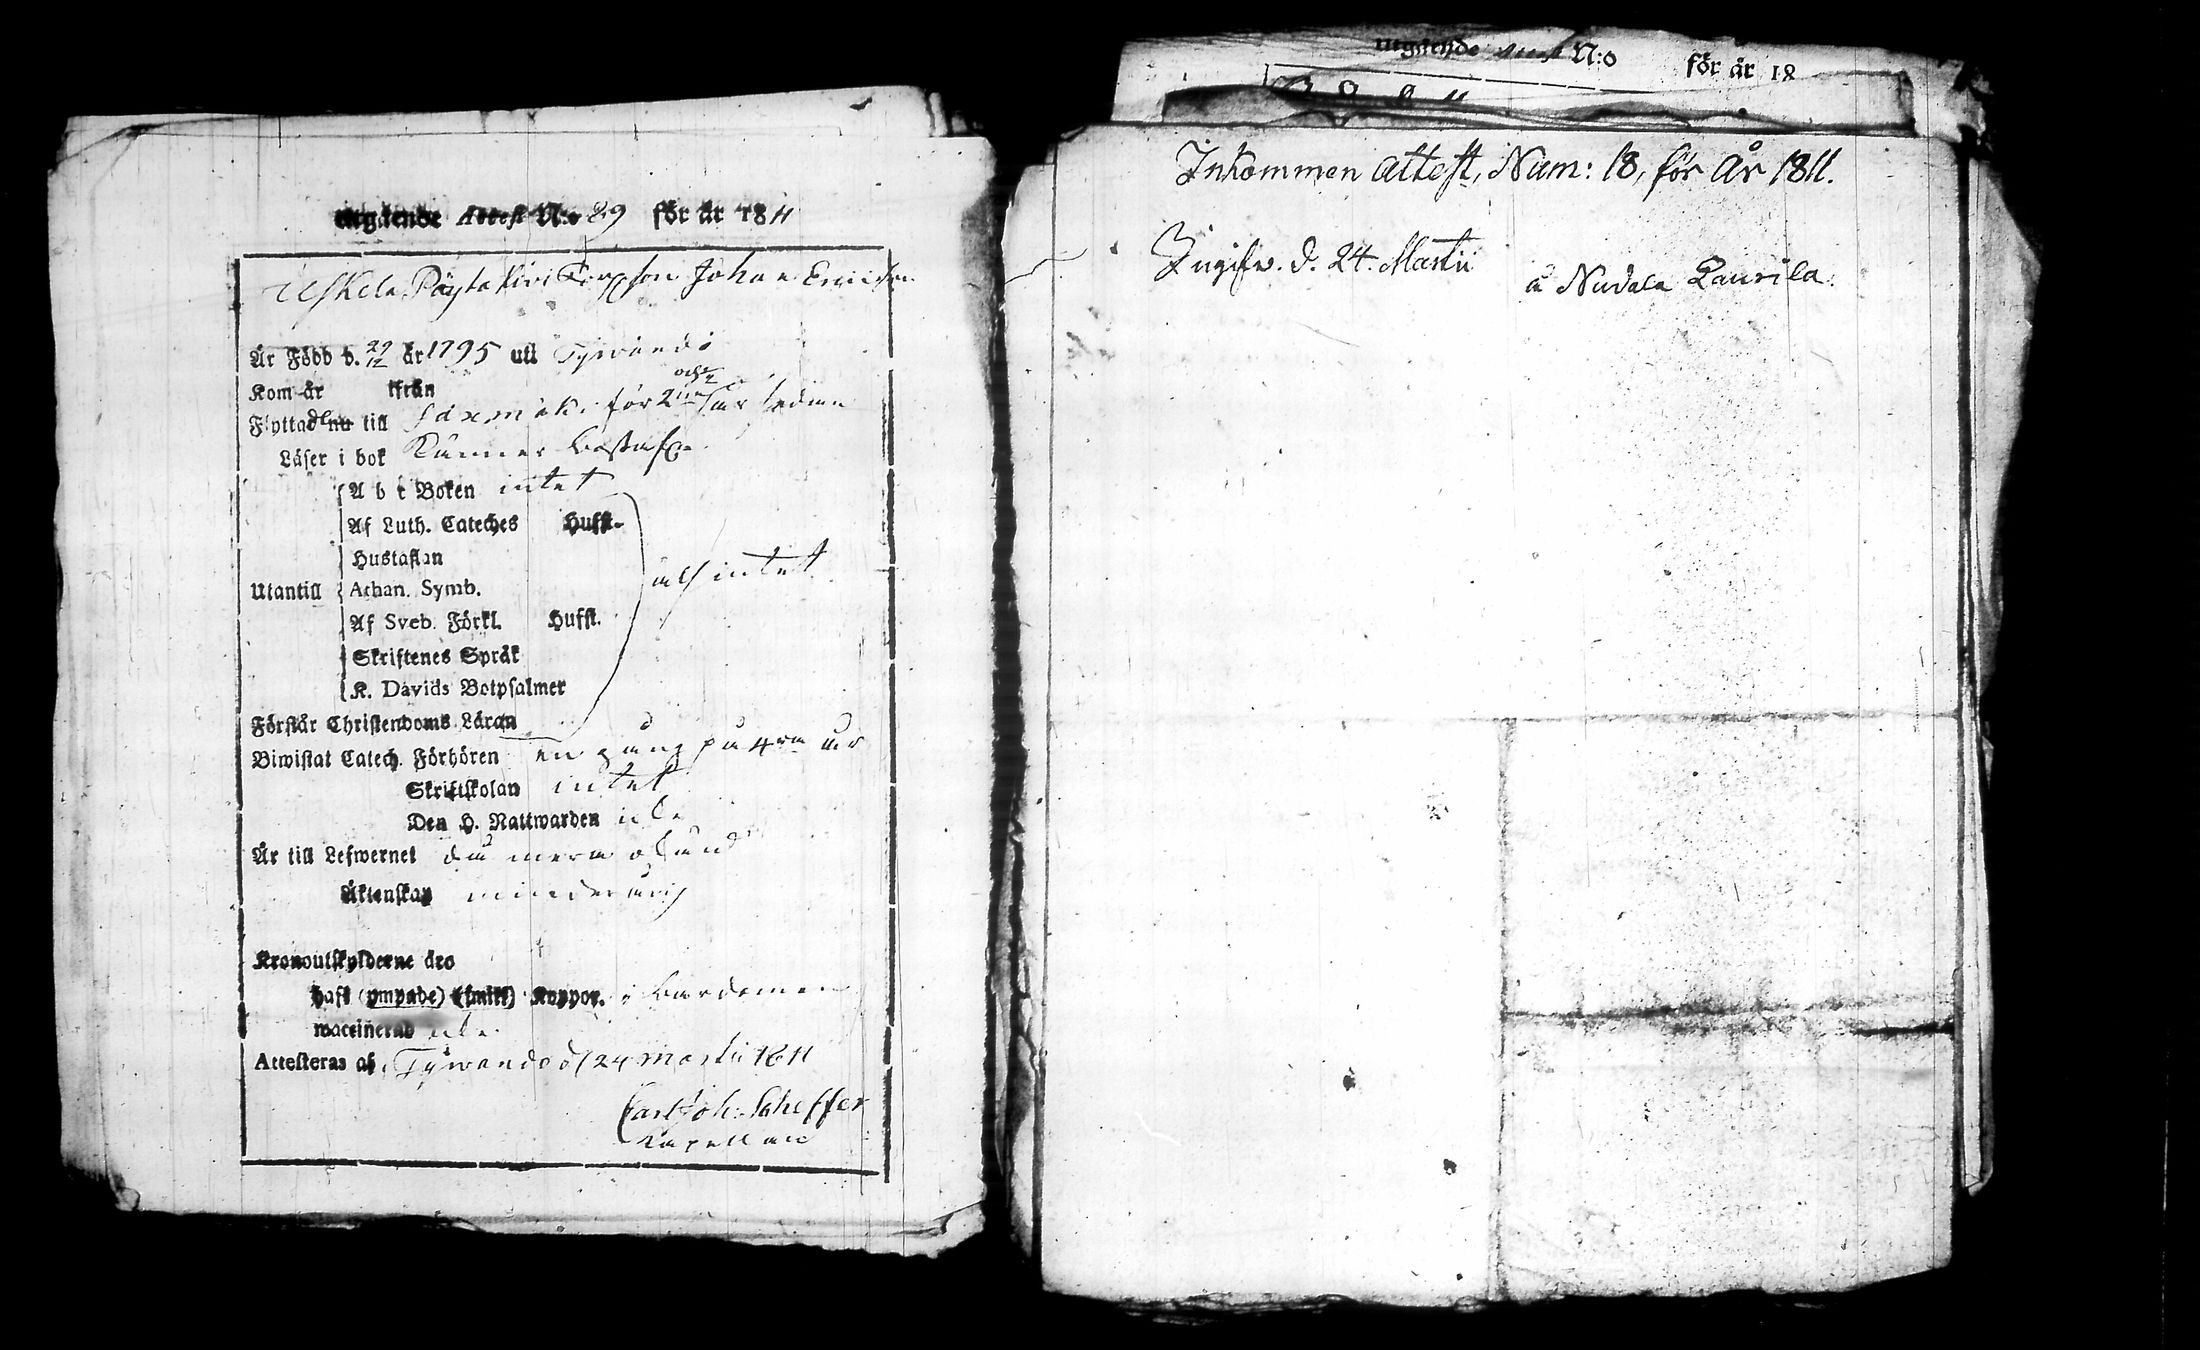 utgående Attest N:o 29 för år 1811
Uskela Pöytakivi Torpson Johan Ericsson
Är Född d. 29/12 år 1795 uti Tyrwändö
Kom år ifrån
och
Flyttade nu till Säxmäki för 2ne år sedan
Läser i bok Känner bokstafr
A b c Boken intet
Af Luth. Cateches Hufst.
Hustaflan
Utantill Athan. Symb. alsintet
Af Sveb. Förkl. Hufst.
Skriftenes Språk
K. Davids Botpsalmer
Förstår Christendoms Läran
Biwistat Catech. Förhören en gång på 4ra år
Skriftskolan intet
Den H. Nattwarden icke
Är till Lefwernet
Äktenskap minderårig
Kronoutskylderne äro
haft (ympade) (smitt) Koppor. i barndomen
waccinerad icke
Attesteras af, Tyrwändö d 24 Martii 1811
Carl Joh: Scheffer
Kapellan
utgående Attest N:o för år 18
Inkommen Attest, Num: 18, för År 1811.
Ingifw. d. 24. Martii
å Nudala Laurila.